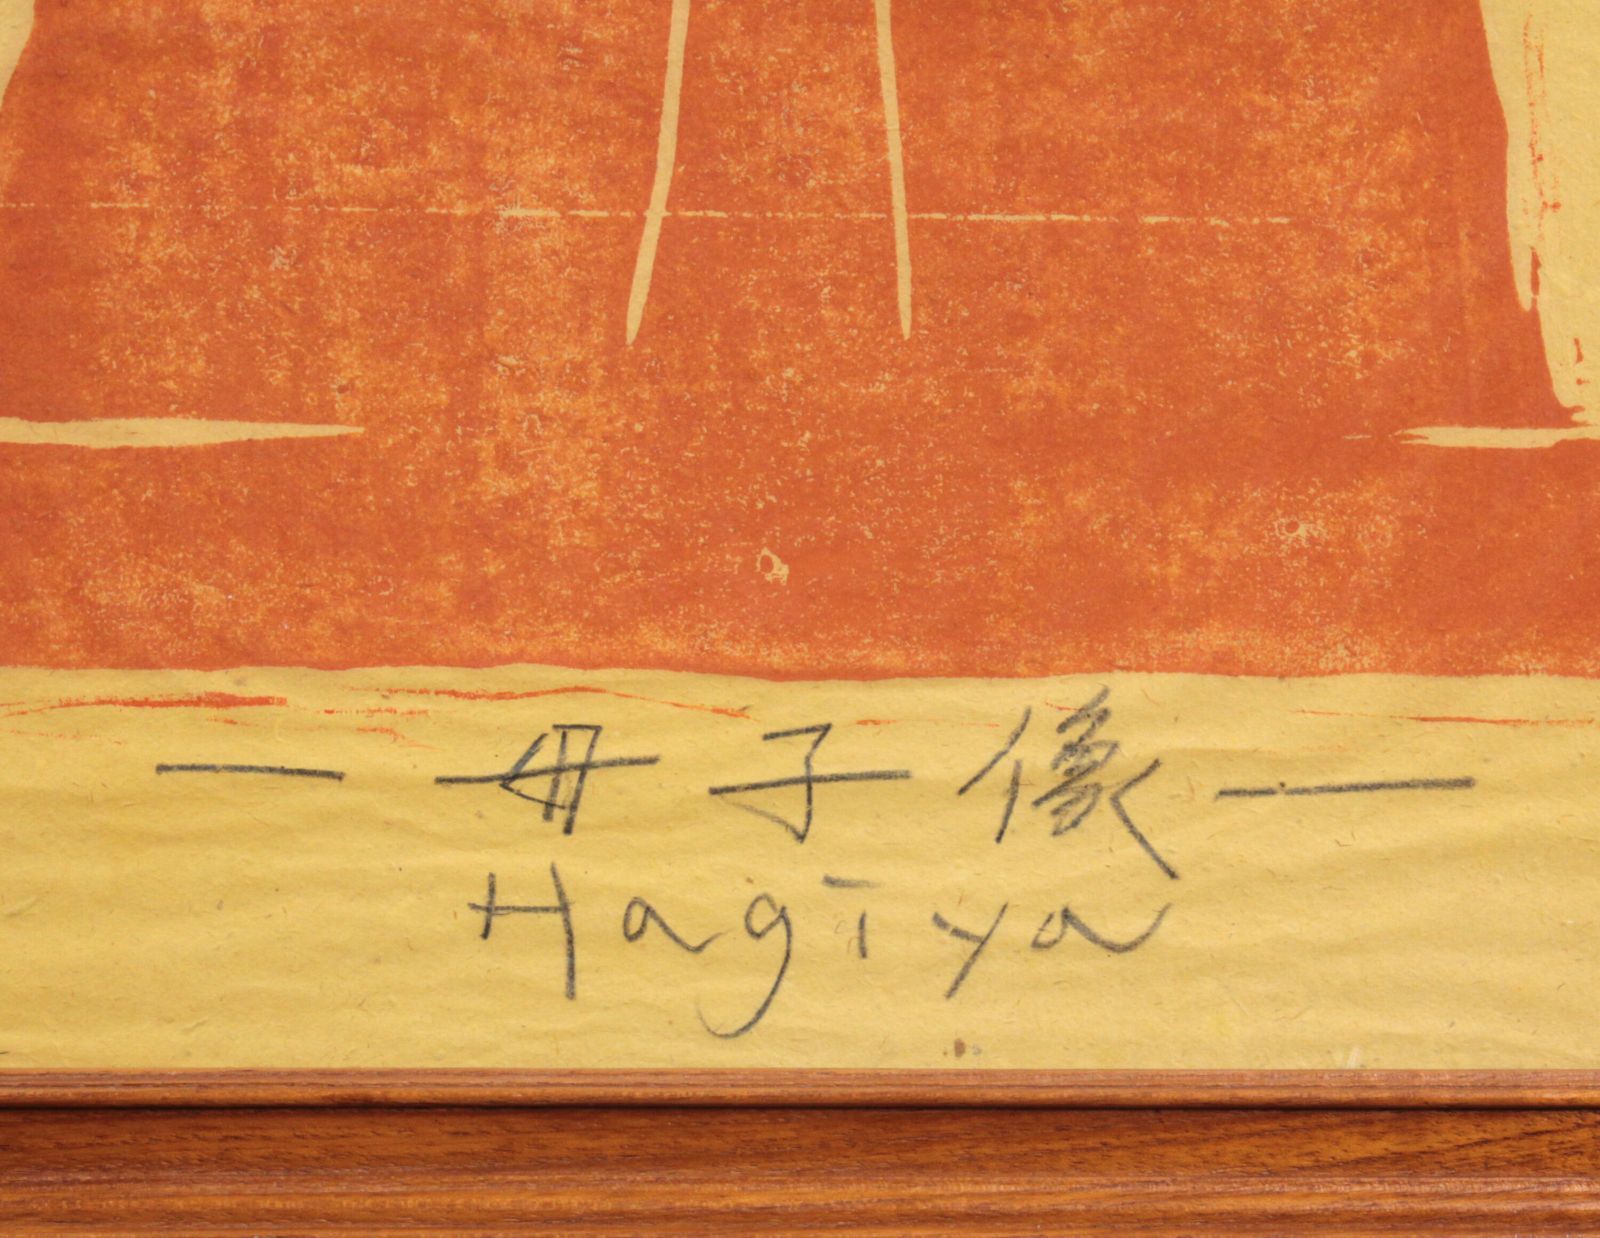 — 母子像 —
Hagiya